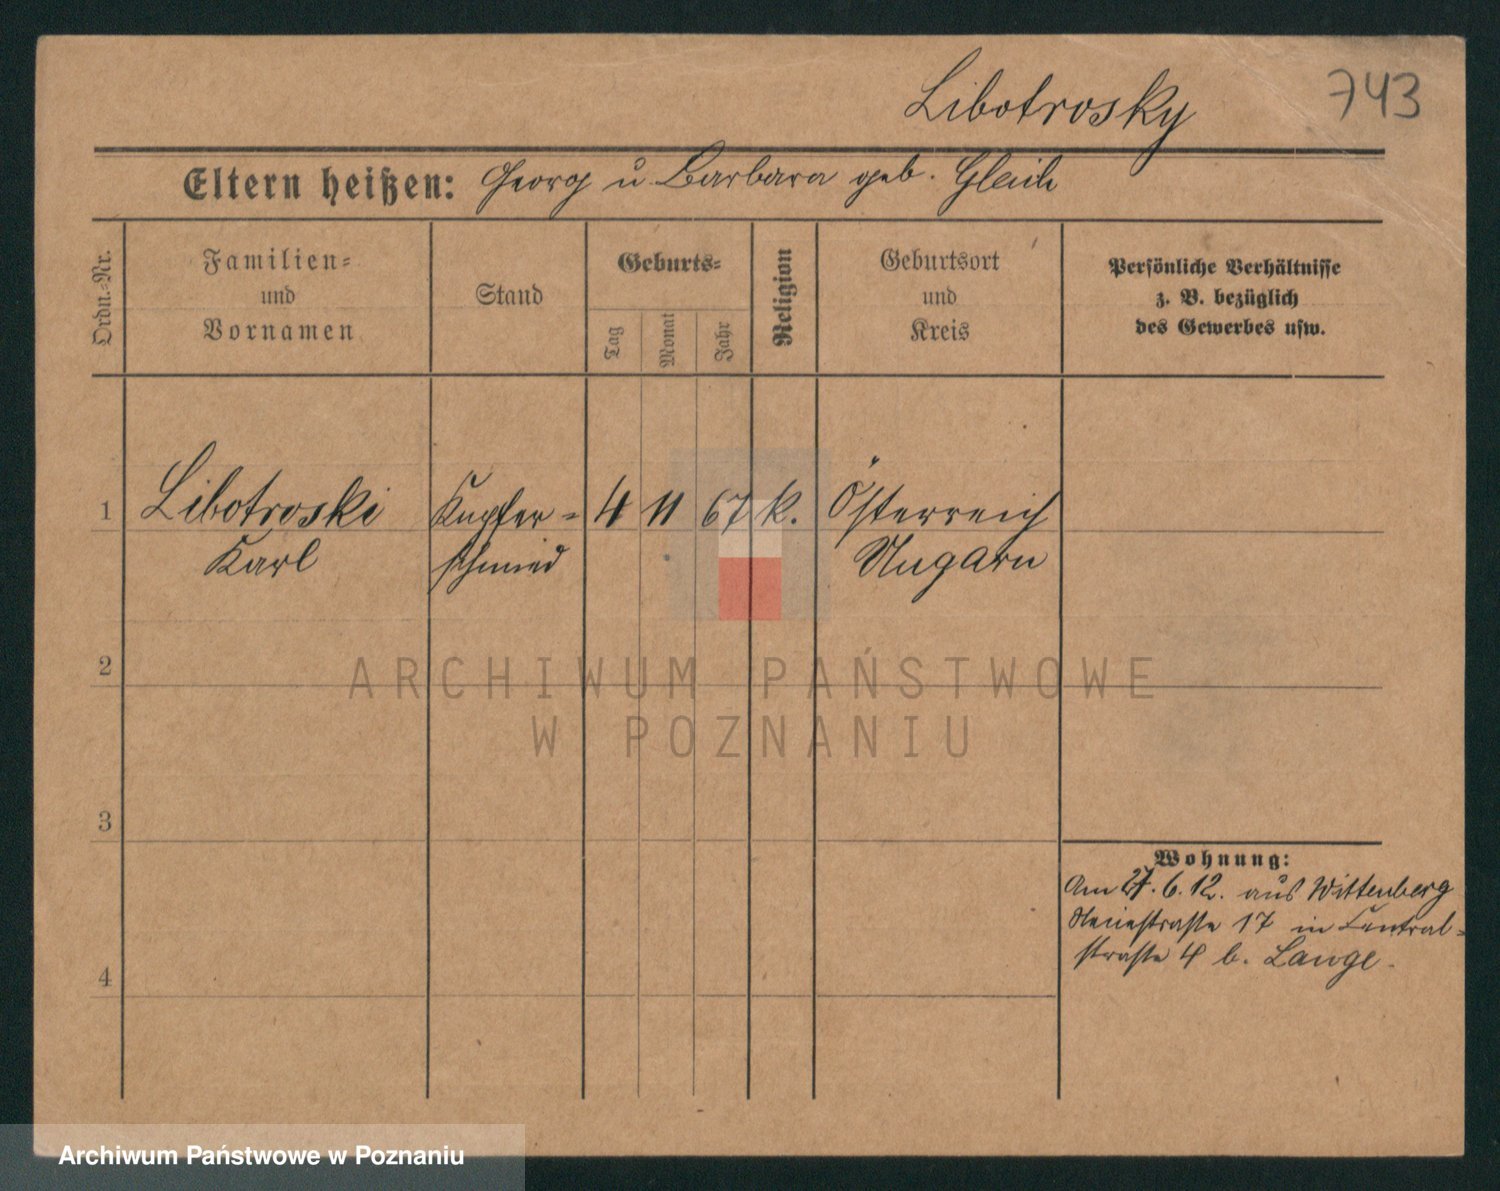 Libotrosky
743
Eltern heißen: Georg u Barbara geb. Gleich
Ordn.=Nr.
Familien=
und
Vornamen
Stand
Geburts=
Tag
Monat
Jahr
Religion
Geburtsort
und
Kreis
Persönliche Verhältnisse
z. B. bezüglich
des Gewerbes usw.
1 Libotroski Kupfer= 4 11 67 k. Österreich
Karl schmied Ungarn
2
ARCHIWUM PAŃSTWOWE
W POZNANIU
3
Wohnung:
Am 27.6.12. aus Wittenberg
Neuestraße 17 in Central=
straße 4 b. Lange.
4
Archiwum Państwowe w Poznaniu